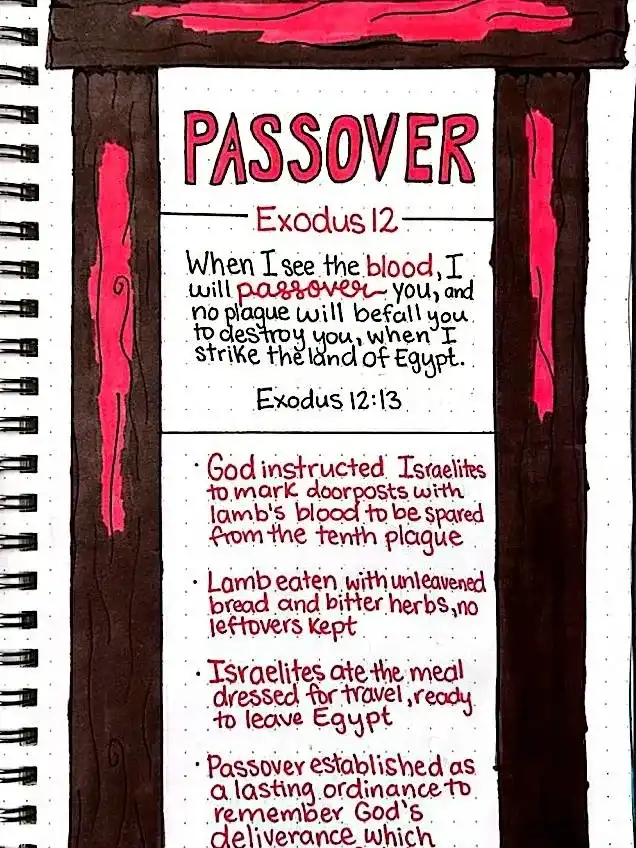 PASSOVER
Exodus 12
When I see the blood, I
will passover you, and
no plague will befall you
to destroy you, when I
strike the land of Egypt.
Exodus 12:13
· God instructed Israelites
to mark doorposts with
lamb's blood to be spared
from the tenth plague
· Lamb eaten with unleavened
bread and bitter herbs, no
leftovers kept
· Israelites ate the meal
dressed for travel, ready
to leave Egypt
· Passover established as
a lasting ordinance to
remember God's
deliverance which